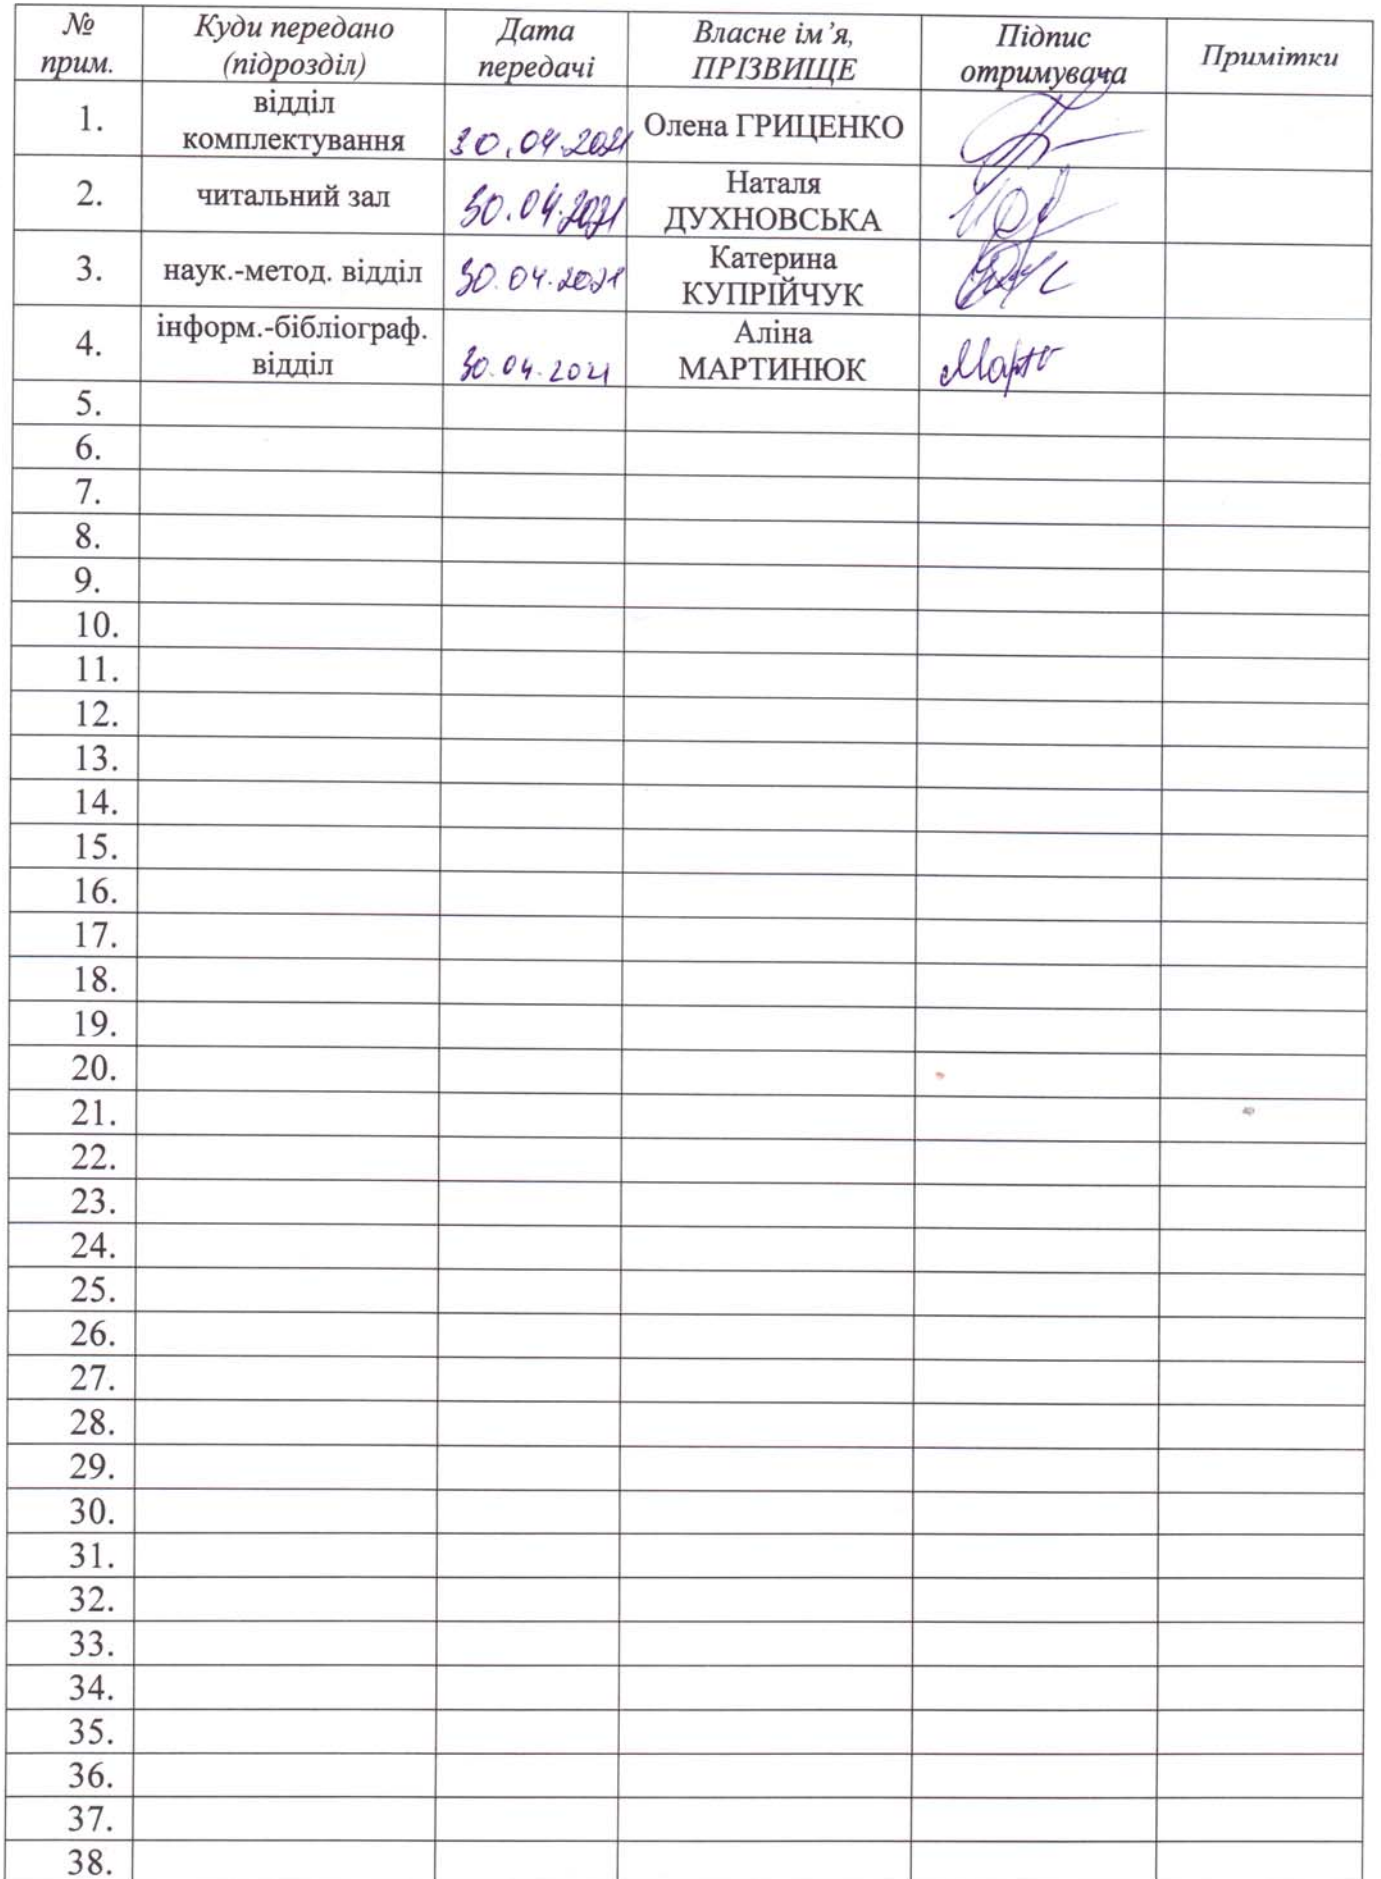 № прим.
Куди передано (підрозділ)
Дата передачі
Власне ім’я, ПРІЗВИЩЕ
Підпис отримувача
Примітки
1.
відділ
комплектування
30.04.2021
Олена ГРИЦЕНКО
2.
читальний зал
30.04.2021
Наталя
ДУХНОВСЬКА
3.
наук.-метод. відділ
30.04.2021
Катерина
КУПРІЙЧУК
4.
інформ.-бібліограф.
відділ
30.04.2021
Аліна
МАРТИНЮК
5.
6.
7.
8.
9.
10.
11.
12.
13.
14.
15.
16.
17.
18.
19.
20.
21.
22.
23.
24.
25.
26.
27.
28.
29.
30.
31.
32.
33.
34.
35.
36.
37.
38.